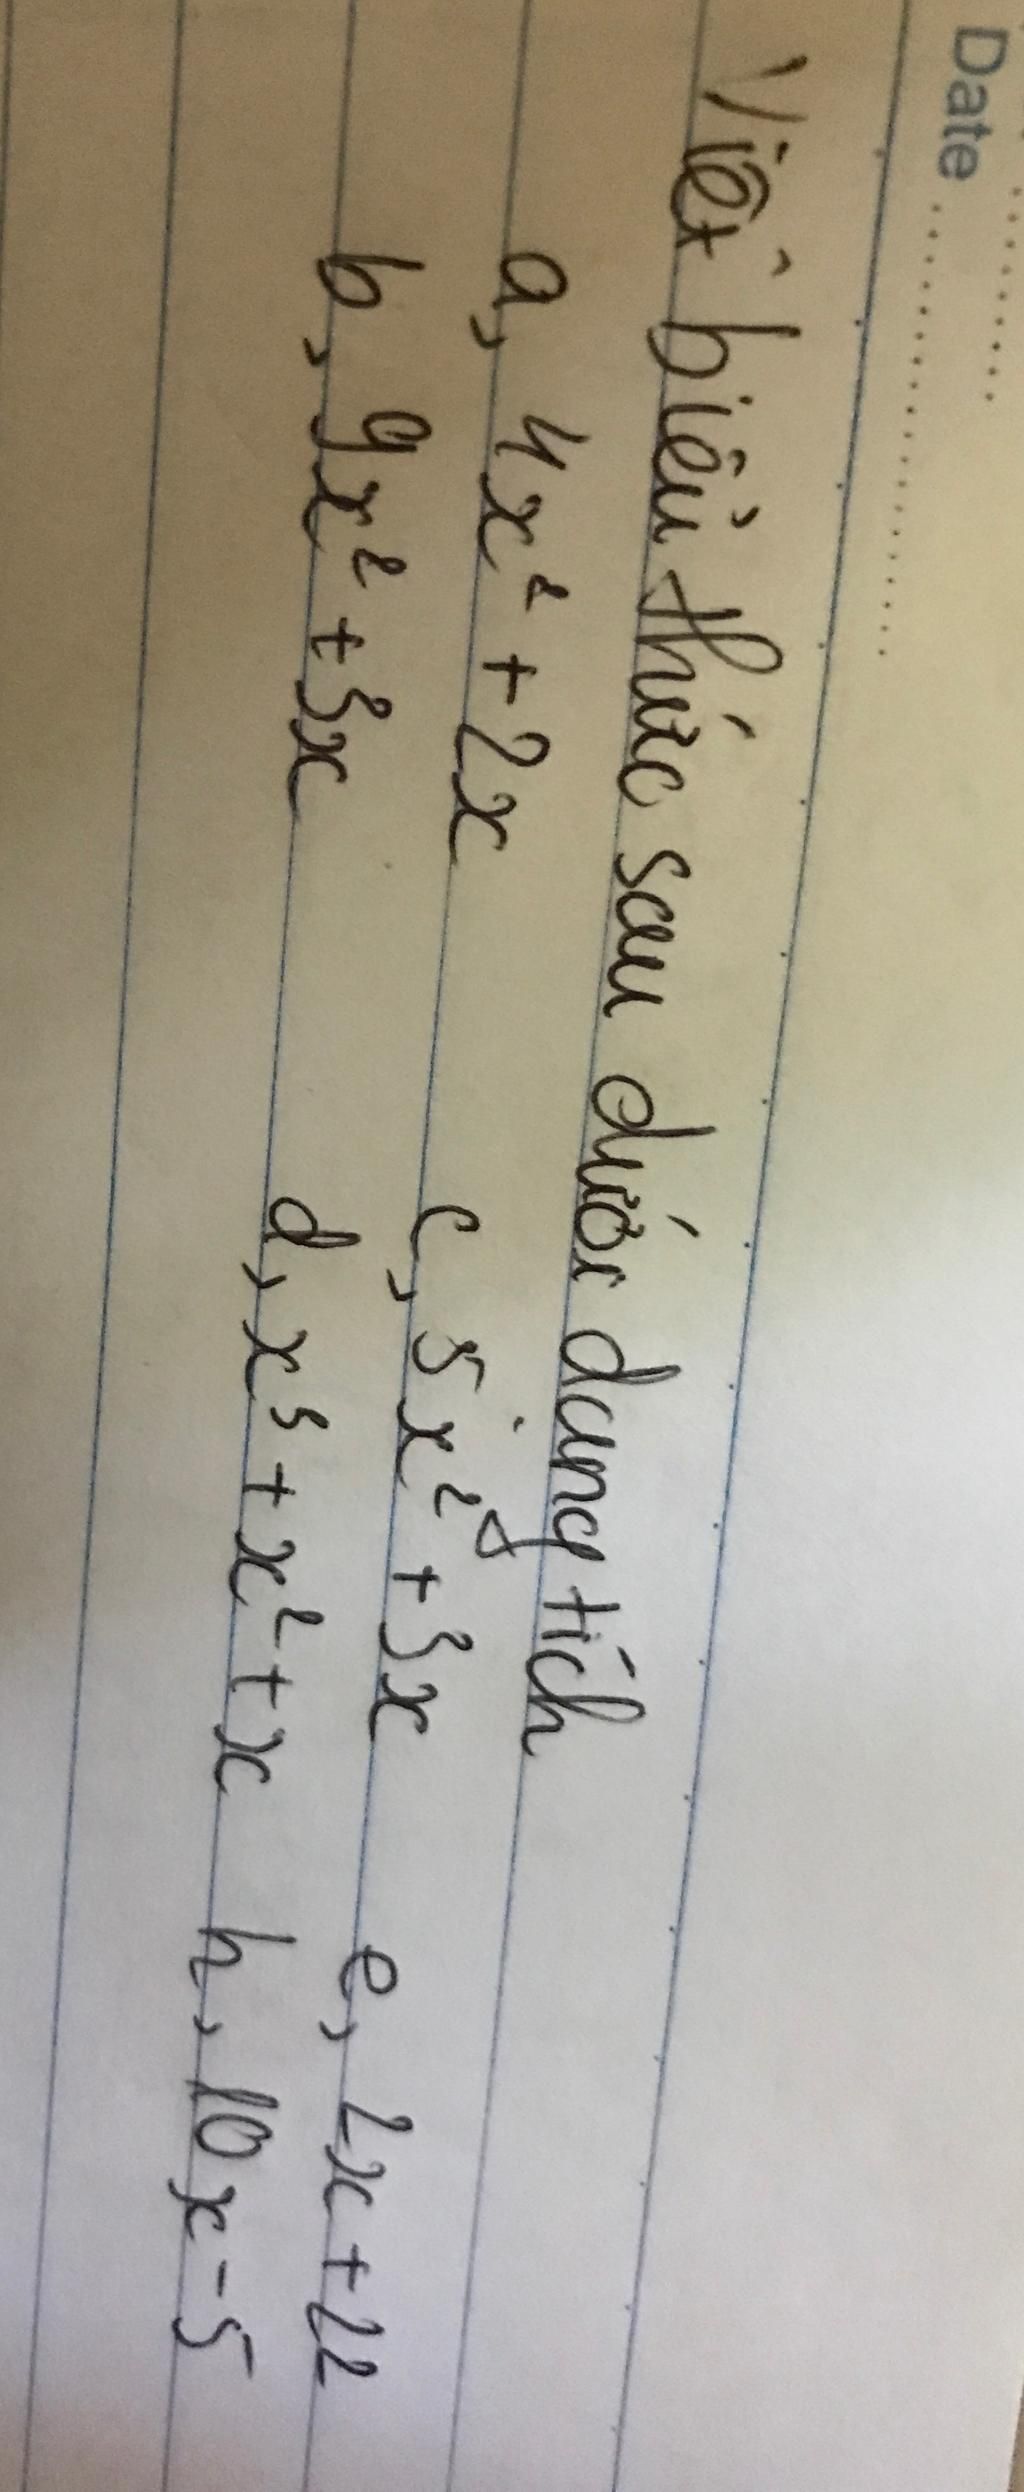 Date
Viết biểu thức sau dưới dạng tích
a, 4x² + 2x
c, 5x² + 3x
e, 2x + 22
b, 9x² + 3x
d, x³ + x² + x
h, 10x - 5